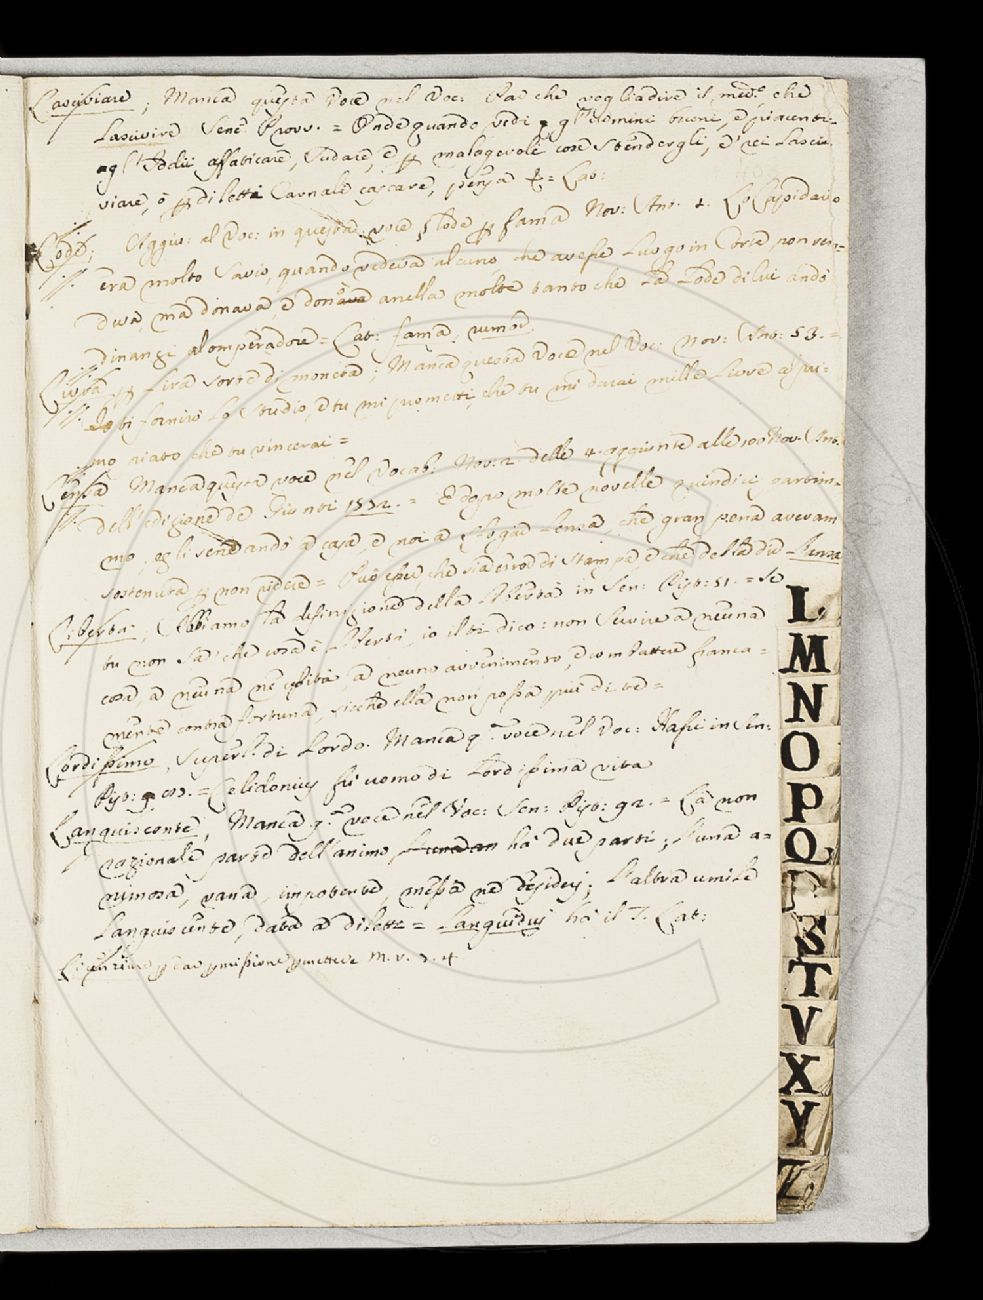 Lasciviare; Manca questa Voce nel Voc: che voglia dire il med.º che
Lascivire Sene: Provv. = Onde quando vedi gl'Uomini buoni, e piacenti
agl'Iddii affaticare, sudare, e p malagevoli cose stendergli, e rei Lasci-
viare, o p diletti Carnale cascare, pensa = Lat:
Lode; Aggiu: al Voc: in questa voce Lode p fama Nov: Ano. 2. Lo Lapidario
era molto Savio, quando vedeva alcuno che avesse Luogo in Corte non ven-
deva, ma donava, e donò anella molte tanto che La Lode di lui andò
dinanzi al omperadore = Lat: fama, rumor.
Livra p Lira sorte di moneta; Manca questa Voce nel Voc: Nov: Ano: 53. =
Io ti fornirò lo Studio, e tu mi prometti, che tu mi darai mille Livre a pri-
mo piato che tu vincerai =
Lensa Manca questa voce nel Vocab: Nov: 2. delle 4. aggiunte alle 100 Nov. Ano.
dell'edizione de Giunti 1572. = E dopo molte novelle quindici partim-
mo, egli senandò a casa, e noi a sfogar Lensa, che gran pena avevam
sostenuta p non ridere = che sia error di stampa, e che debba dir
Libertà; Abbiamo la definizione della Libertà in Sen: Pist: 51. = Se
tu non sai che cosa è Libertà, io il ti dico: non Servire a neuna
cosa, a neuna necessità, a neuno avvenimento, e combattere franca-
mente contra fortuna, sicché ella non possa più di te =
Lordissimo, Superl.º di Lordo. Manca q.ª voce nel Voc: in Sen:
Pist: = Celidonius fu uomo di Lordissima vita
Languiscente, Manca q.ª voce nel Voc: Sen: Pist: 92. = La non
razionale parte dell'animo ha due parti; l'una a-
nimosa, vana, impotente, messa ne desiderj; l'altra umile
Languiscente, data a diletti = Languidus ha il T. Lat:
M. V. 3. 4
L
M
N
O
P
Q
R
S
T
V
X
Y
Z